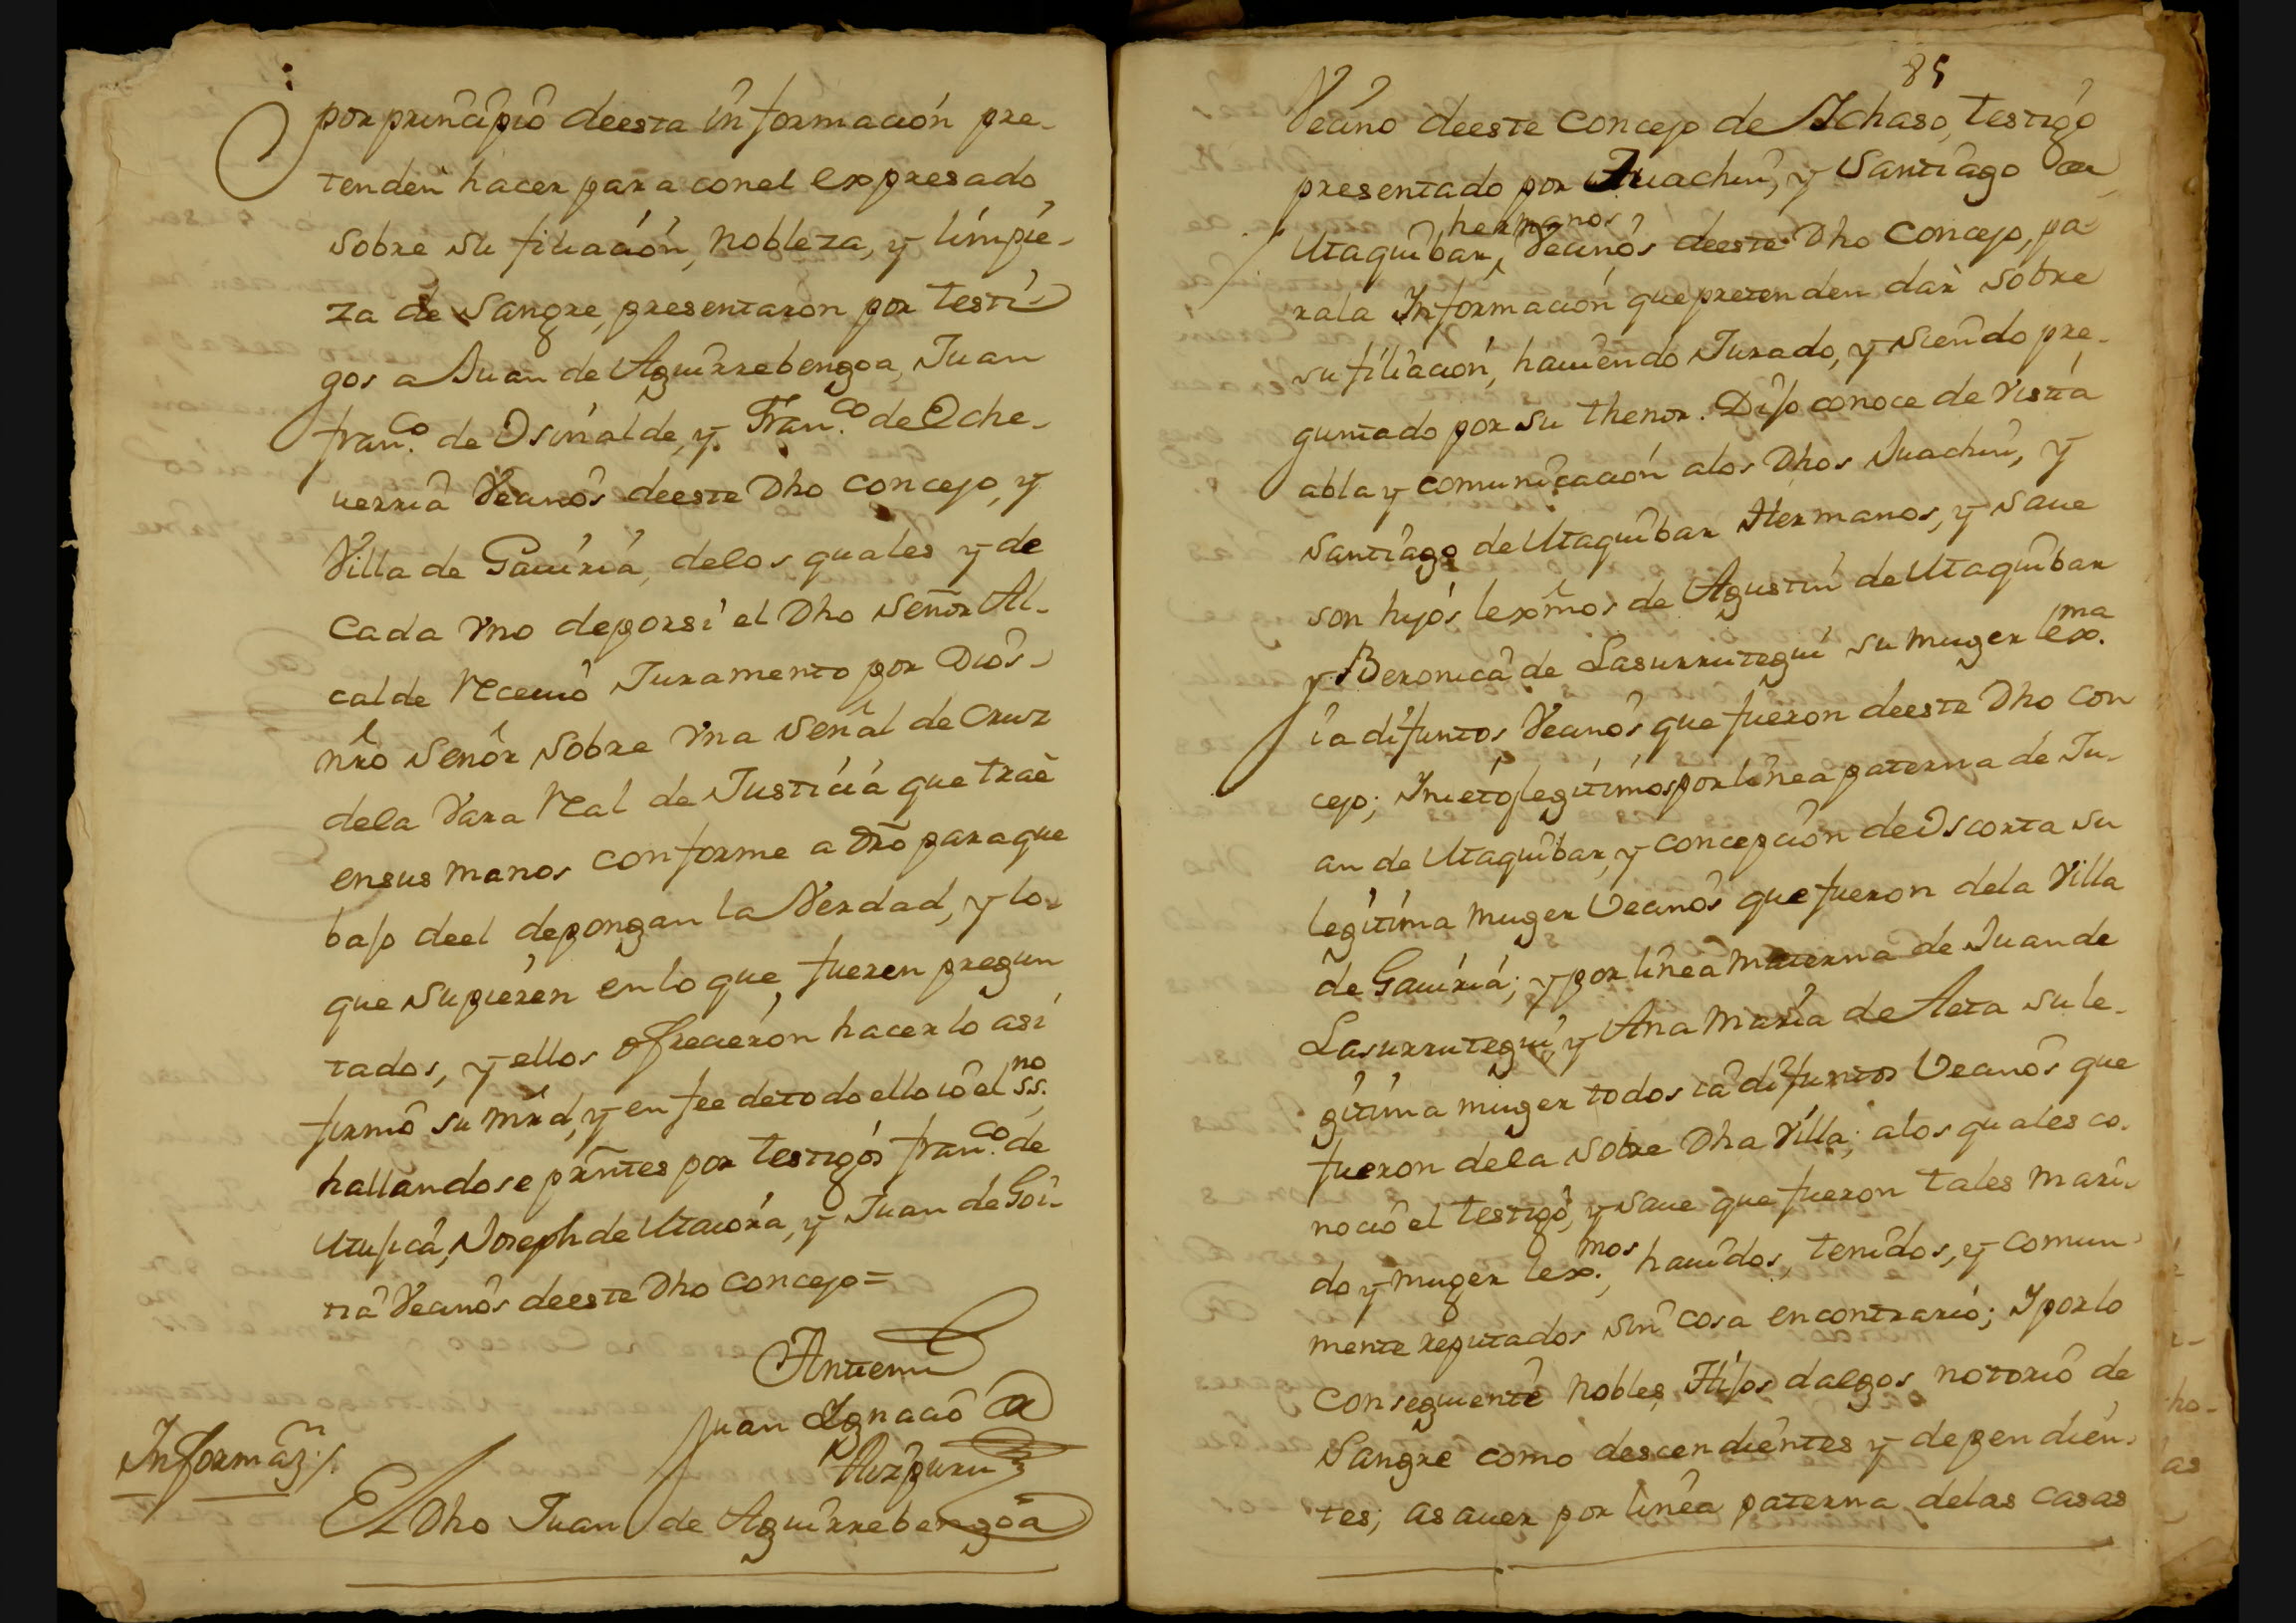 por principio deesta informacion pre-
tenden hacer para conel expresado
sobre su filiación, nobleza, y limpie-
za de Sangre, presentaron por testi-
gos a Juan de Aguirrebengoa, Juan
fran.co de Osinalde, y Fran.co de Eche-
uerria Vecinos deeste Dho concejo, y
Villa de Gauiria, delos quales y de
cada vno deporsi el Dho Señor Al-
calde Receuio Juramento por Dios
nro Señor sobre vna Señal de Cruz
dela Vara Real de Justicia que trae
ensus manos conforme a dro paraque
bajo deel depongan la Verdad, y lo
que supieren enlo que fueren pregun
tados, y ellos ofrecieron hacerlo asi
firmó su mrd, y en fee detodo ello io el ss.no
hallandose prntes por testigos fran.co de
Joseph de Utaiora, y Juan de Goi-
tia Vecinos deeste Dho concejo=
Antemi
Juan Ignacio de
Aizpuru
Informaz.n
El Dho Juan de Aguirrebengoa
85
Vecino deeste concejo de Ichaso, testigo
presentado por Juachin, y Santiago de
hermanos
Utaquibar, Vecinos deeste Dho Concejo, pa
rala Informacion que pretenden dar sobre
su filiación, hauiendo Jurado, y siendo pre-
guntado por su thenor. Dijo conoce de vista
abla y comunicacion alos Dhos Juachin, y
Santiago de Utaquibar Hermanos, y saue
son hijos lexmos de Agustin de Utaquibar
y Beronica de Lasurrutegui su muger lex.ma
ia difuntos Vecinos que fueron deeste Dho con
cejo; Inietos legitimos por linea paterna de Ju-
an de Utaquibar, y concepcion de Oscorta su
legitima muger Vecinos que fueron dela Villa
de Gauiria; y por linea materna de Juan de
Lasurrutegui, y Ana Maria de Aeta su le-
gitima muger todos ia difuntos Vecinos que
fueron dela sobre Dha Villa; alos quales co-
nocio el testigo, y saue que fueron tales mari-
do y muger lex.mos, hauidos, tenidos, y comun
mente reputados sin cosa encontrario; Y por lo
conseguiente nobles Hijos dalgos notorio de
Sangre como descendientes y dependien-
tes; asauer por linea paterna delas casas